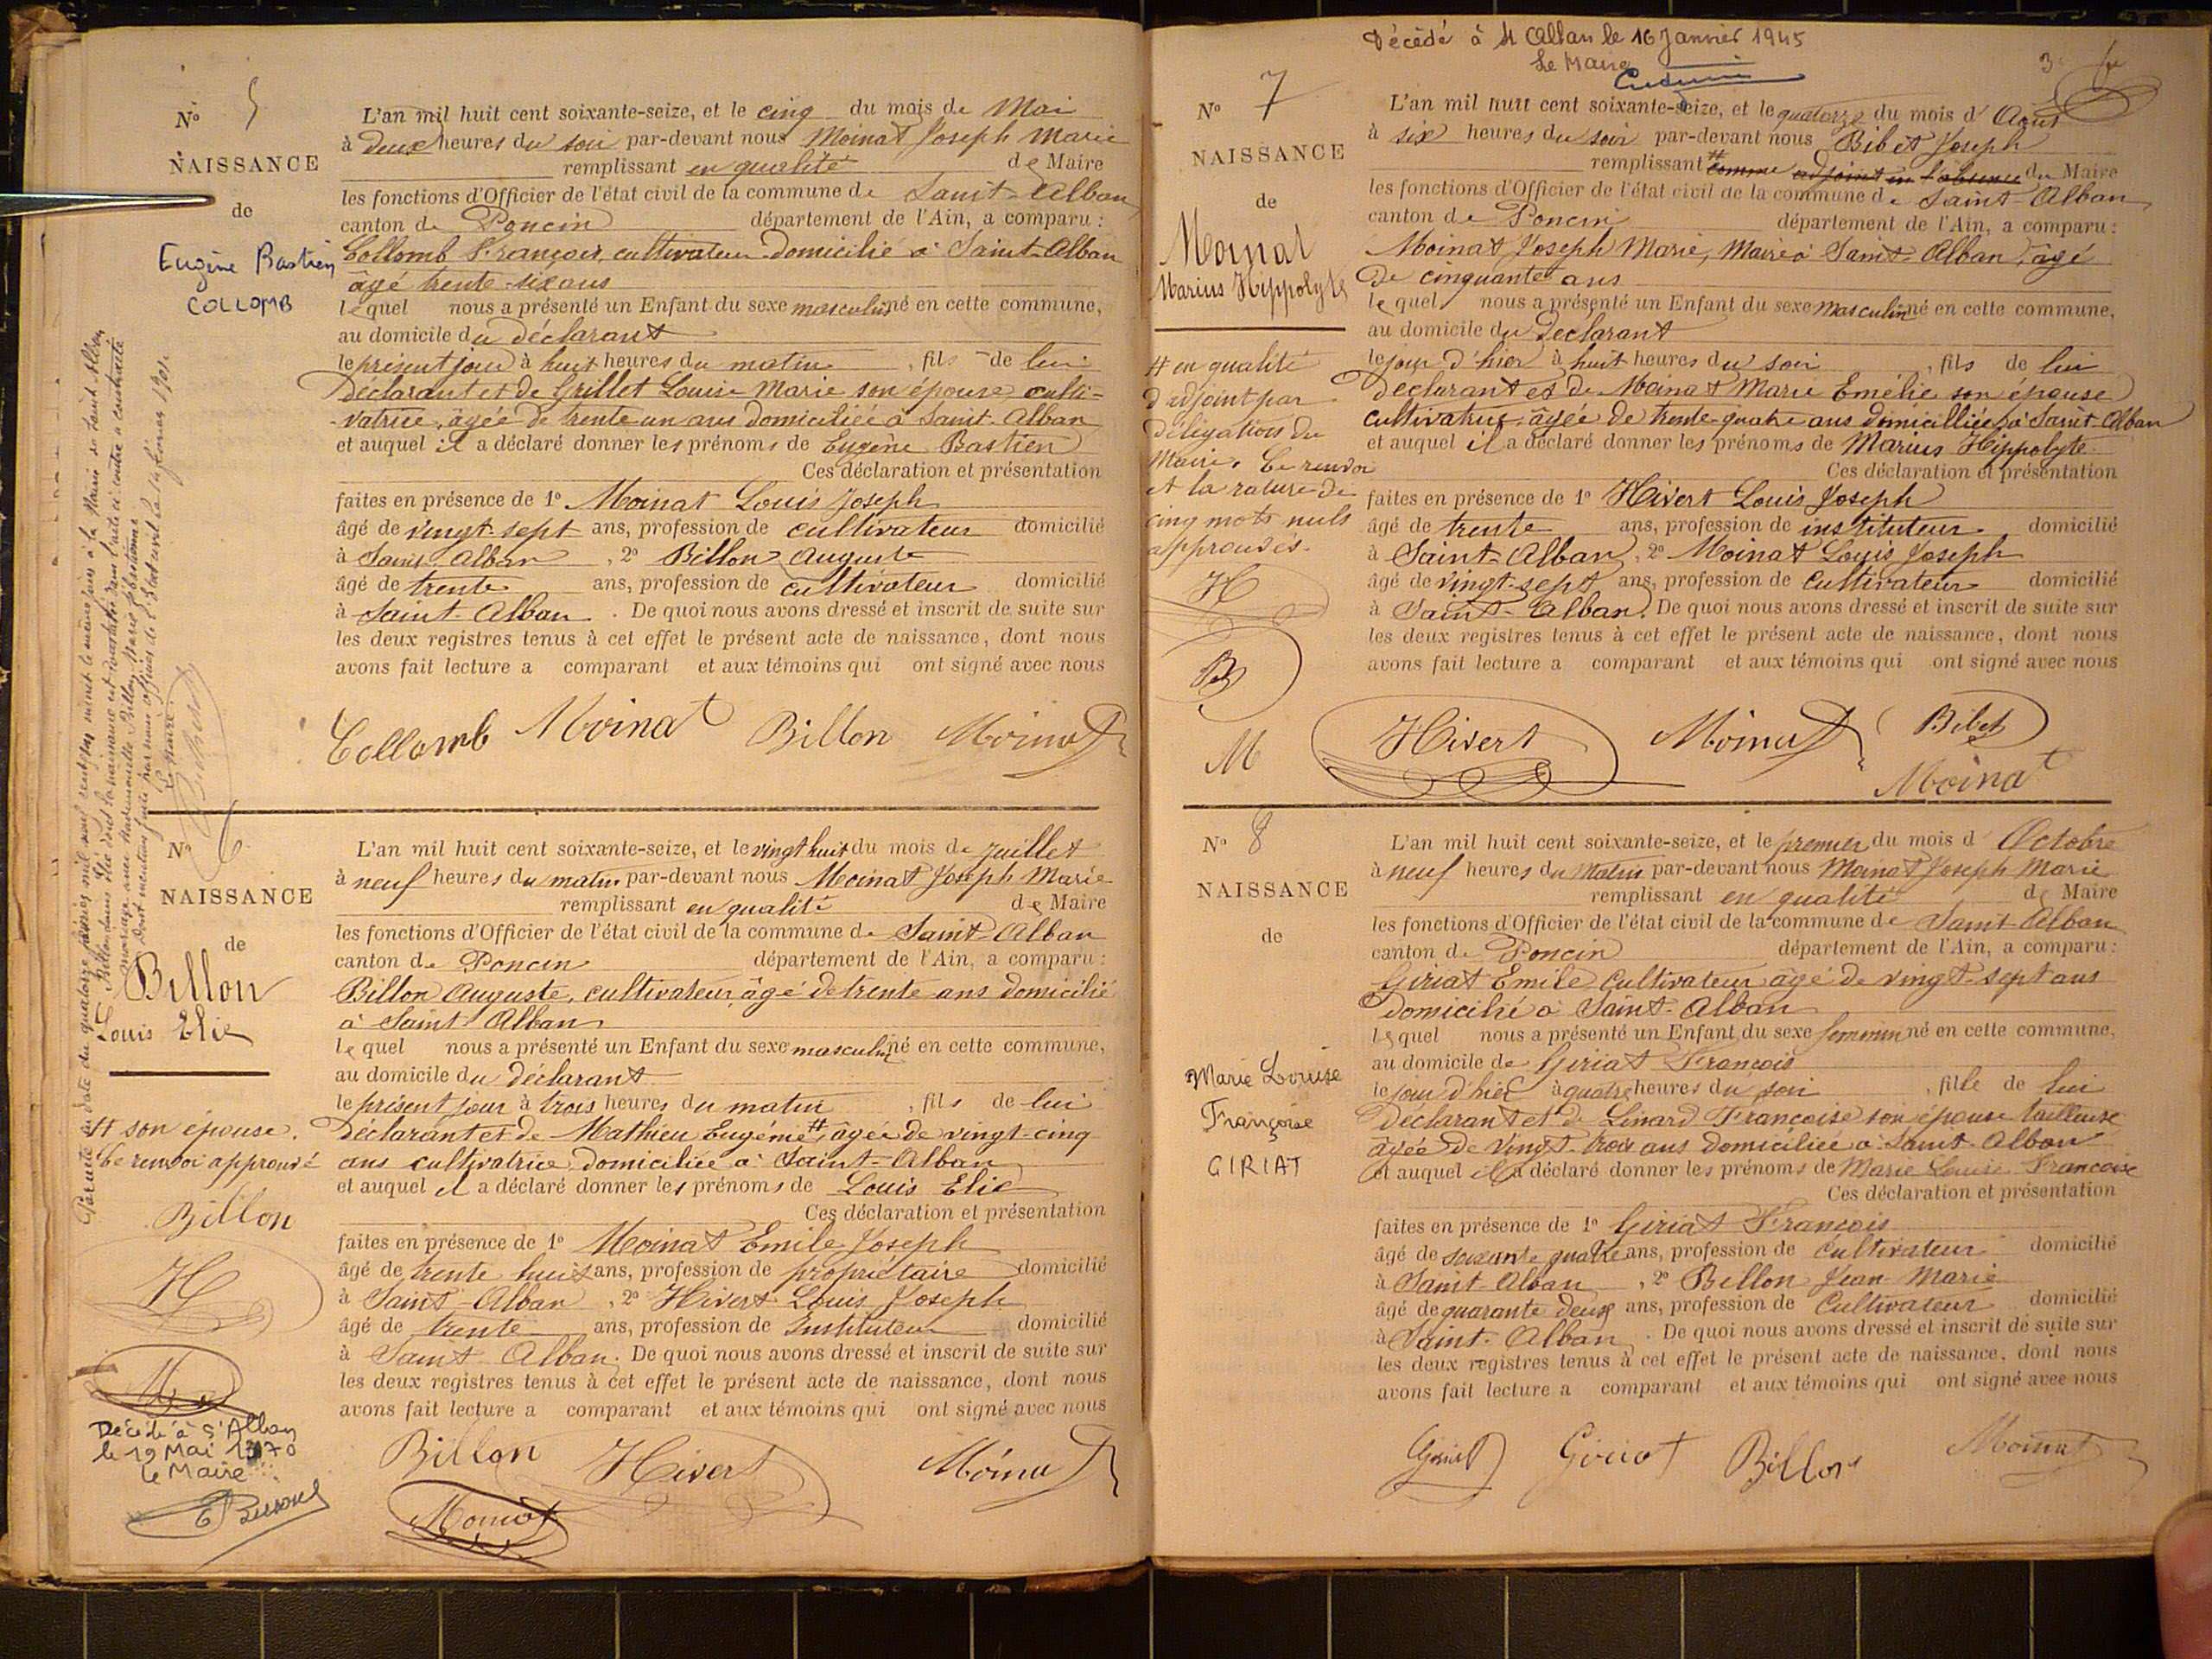 N° 5
NAISSANCE
de
Eugène Bastien
COLLOMB
L'an mil huit cent soixante-seize, et le cinq du mois de Mai
à deux heures du soir par-devant nous Moinat Joseph Marie
remplissant en qualité de Maire
les fonctions d'Officier de l'état civil de la commune de Saint-Alban
canton de Poncin département de l'Ain, a comparu :
Collomb François, cultivateur domicilié à Saint-Alban
âgé trente-six ans
lequel nous a présenté un Enfant du sexe masculin né en cette commune,
au domicile du déclarant
le présent jour à huit heures du matin, fils de lui
Déclarant et de Grillet Louise Marie son épouse culti-
-vatrice, âgée de trente un ans domiciliée à Saint-Alban
et auquel il a déclaré donner les prénoms de Eugène Bastien
Ces déclaration et présentation
faites en présence de 1° Moinat Louis Joseph
âgé de vingt-sept ans, profession de cultivateur domicilié
à Saint-Alban, 2° Billon Auguste
âgé de trente ans, profession de cultivateur domicilié
à Saint-Alban. De quoi nous avons dressé et inscrit de suite sur
les deux registres tenus à cet effet le présent acte de naissance, dont nous
avons fait lecture a comparant et aux témoins qui ont signé avec nous
Collomb Moinat Billon Moinat
N° 6
NAISSANCE
de
Billon
Louis Elie
# son épouse.
Ce renvoi approuvé
Billon
H
Décédé à St Alban
le 19 Mai 1970
Le Maire
L'an mil huit cent soixante-seize, et le vingt huit du mois de Juillet
à neuf heures du matin par-devant nous Moinat Joseph Marie
remplissant en qualité de Maire
les fonctions d'Officier de l'état civil de la commune de Saint-Alban
canton de Poncin département de l'Ain, a comparu :
Billon Auguste, cultivateur âgé de trente ans domicilié
à Saint-Alban
lequel nous a présenté un Enfant du sexe masculin né en cette commune,
au domicile du déclarant
le présent jour à trois heures du matin, fils de lui
Déclarant et de Mathieu Eugénie #, âgée de vingt-cinq
ans cultivatrice domiciliée à Saint-Alban
et auquel il a déclaré donner les prénoms de Louis Elie
Ces déclaration et présentation
faites en présence de 1° Moinat Emile Joseph
âgé de trente huit ans, profession de propriétaire domicilié
à Saint-Alban, 2° Hivert Louis Joseph
âgé de trente ans, profession de Instituteur domicilié
à Saint-Alban. De quoi nous avons dressé et inscrit de suite sur
les deux registres tenus à cet effet le présent acte de naissance, dont nous
avons fait lecture a comparant et aux témoins qui ont signé avec nous
Billon Hivert Moinat
Moinat
Décédé à St Alban le 16 Janvier 1945
Le Maire
3
N° 7
NAISSANCE
de
Moinat
Marius Hippolyte
# en qualité
d'adjoint par
délégation du
Maire. Ce renvoi
et la rature de
cinq mots nuls
approuvés.
H
B
M
L'an mil huit cent soixante-seize, et le quatorze du mois d'Août
à six heures du soir par-devant nous Bibet Joseph
remplissant # comme adjoint en l'absence du Maire
les fonctions d'Officier de l'état civil de la commune de Saint-Alban
canton de Poncin département de l'Ain, a comparu :
Moinat Joseph Marie, Maire à Saint-Alban âgé
de cinquante ans
lequel nous a présenté un Enfant du sexe masculin né en cette commune,
au domicile du Déclarant
le jour d'hier à huit heures du soir, fils de lui
Déclarant et de Moinat Marie Emélie son épouse
cultivatrice âgée de trente-quatre ans domiciliée à Saint-Alban
et auquel il a déclaré donner les prénoms de Marius Hippolyte
Ces déclaration et présentation
faites en présence de 1° Hivert Louis Joseph
âgé de trente ans, profession de instituteur domicilié
à Saint-Alban, 2° Moinat Louis Joseph
âgé de vingt-sept ans, profession de cultivateur domicilié
à Saint-Alban. De quoi nous avons dressé et inscrit de suite sur
les deux registres tenus à cet effet le présent acte de naissance, dont nous
avons fait lecture a comparant et aux témoins qui ont signé avec nous
Hivert Moinat Bibet
Moinat
N° 8
NAISSANCE
de
Marie Louise
Françoise
GIRIAT
L'an mil huit cent soixante-seize, et le premier du mois d Octobre
à neuf heures du matin par-devant nous Moinat Joseph Marie
remplissant en qualité de Maire
les fonctions d'Officier de l'état civil de la commune de Saint-Alban
canton de Poncin département de l'Ain, a comparu :
Giriat Emile cultivateur âgé de vingt-sept ans
Domicilié à Saint-Alban
lequel nous a présenté un Enfant du sexe feminin né en cette commune,
au domicile de Giriat François
le jour d'hier à quatre heures du soir, fille de lui
Déclarant et de Linard Françoise son épouse tailleuse
âgée de vingt-trois ans domiciliée à Saint-Alban
et auquel il a déclaré donner les prénoms de Marie Louise Françoise
Ces déclaration et présentation
faites en présence de 1° Giriat François
âgé de soixante quatre ans, profession de cultivateur domicilié
à Saint-Alban, 2° Billon Jean-Marie
âgé de quarante deux ans, profession de Cultivateur domicilié
à Saint-Alban. De quoi nous avons dressé et inscrit de suite sur
les deux registres tenus à cet effet le présent acte de naissance, dont nous
avons fait lecture a comparant et aux témoins qui ont signé avec nous
Giriat Giriat Billon Moinat